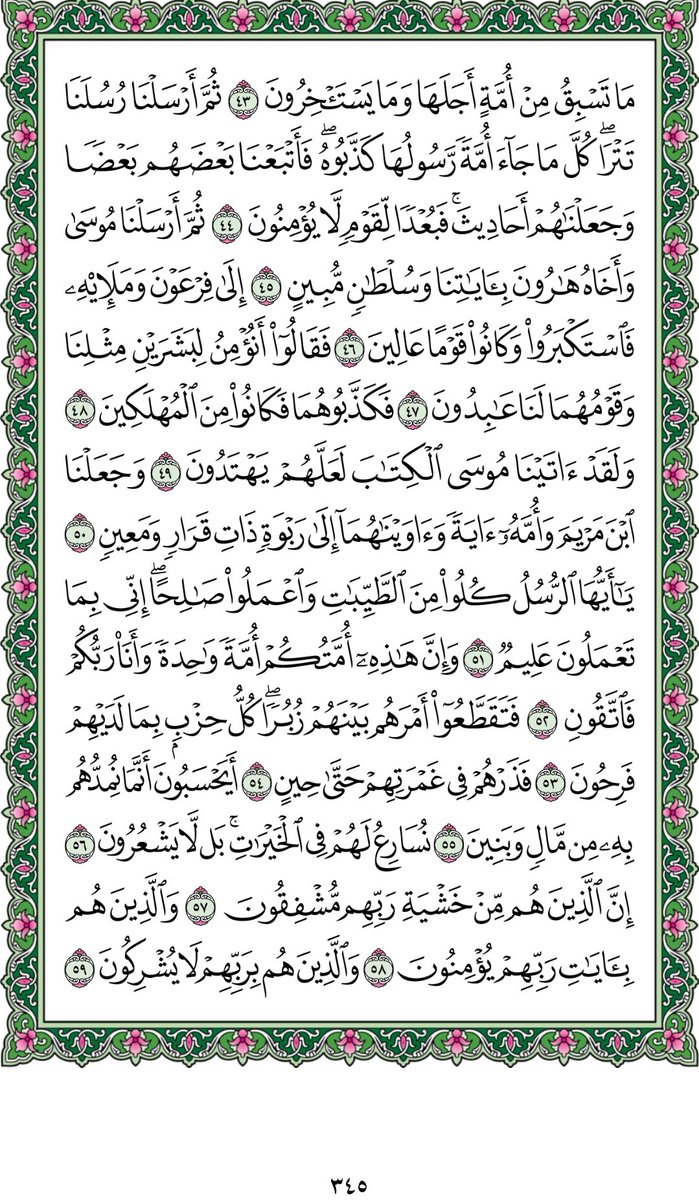 مَا تَسْبِقُ مِنْ أُمَّةٍ أَجَلَهَا وَمَا يَسْتَـْٔخِرُونَ ٤٣ ثُمَّ أَرْسَلْنَا رُسُلَنَا
تَتْرَاۖ كُلَّ مَا جَآءَ أُمَّةٗ رَّسُولُهَا كَذَّبُوهُۖ فَأَتْبَعْنَا بَعْضَهُم بَعْضٗا
وَجَعَلْنَٰهُمْ أَحَادِيثَۚ فَبُعْدٗا لِّقَوْمٖ لَّا يُؤْمِنُونَ ٤٤ ثُمَّ أَرْسَلْنَا مُوسَىٰ
وَأَخَاهُ هَٰرُونَ بِـَٔايَٰتِنَا وَسُلْطَٰنٖ مُّبِينٍ ٤٥ إِلَىٰ فِرْعَوْنَ وَمَلَإِيْهِۦ
فَٱسْتَكْبَرُوا۟ وَكَانُوا۟ قَوْمًا عَالِينَ ٤٦ فَقَالُوٓا۟ أَنُؤْمِنُ لِبَشَرَيْنِ مِثْلِنَا
وَقَوْمُهُمَا لَنَا عَٰبِدُونَ ٤٧ فَكَذَّبُوهُمَا فَكَانُوا۟ مِنَ ٱلْمُهْلَكِينَ ٤٨
وَلَقَدْ ءَاتَيْنَا مُوسَى ٱلْكِتَٰبَ لَعَلَّهُمْ يَهْتَدُونَ ٤٩ وَجَعَلْنَا
ٱبْنَ مَرْيَمَ وَأُمَّهُۥٓ ءَايَةٗ وَءَاوَيْنَٰهُمَآ إِلَىٰ رَبْوَةٖ ذَاتِ قَرَارٖ وَمَعِينٖ ٥٠
يَٰٓأَيُّهَا ٱلرُّسُلُ كُلُوا۟ مِنَ ٱلطَّيِّبَٰتِ وَٱعْمَلُوا۟ صَٰلِحًاۖ إِنِّى بِمَا
تَعْمَلُونَ عَلِيمٞ ٥١ وَإِنَّ هَٰذِهِۦٓ أُمَّتُكُمْ أُمَّةٗ وَٰحِدَةٗ وَأَنَا۠ رَبُّكُمْ
فَٱتَّقُونِ ٥٢ فَتَقَطَّعُوٓا۟ أَمْرَهُم بَيْنَهُمْ زُبُرٗاۖ كُلُّ حِزْبِۭ بِمَا لَدَيْهِمْ
فَرِحُونَ ٥٣ فَذَرْهُمْ فِى غَمْرَتِهِمْ حَتَّىٰ حِينٍ ٥٤ أَيَحْسَبُونَ أَنَّمَا نُمِدُّهُم
بِهِۦ مِن مَّالٖ وَبَنِينَ ٥٥ نُسَارِعُ لَهُمْ فِى ٱلْخَيْرَٰتِۚ بَل لَّا يَشْعُرُونَ ٥٦
إِنَّ ٱلَّذِينَ هُم مِّنْ خَشْيَةِ رَبِّهِم مُّشْفِقُونَ ٥٧ وَٱلَّذِينَ هُم
بِـَٔايَٰتِ رَبِّهِمْ يُؤْمِنُونَ ٥٨ وَٱلَّذِينَ هُم بِرَبِّهِمْ لَا يُشْرِكُونَ ٥٩
٣٤٥